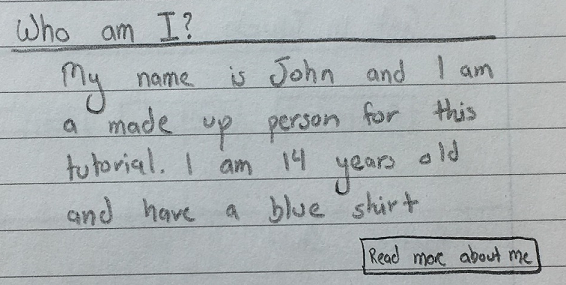 Who am I?
My name is John and I am
a made up person for this
tutorial. I am 14 years old
and have a blue shirt
Read more about me